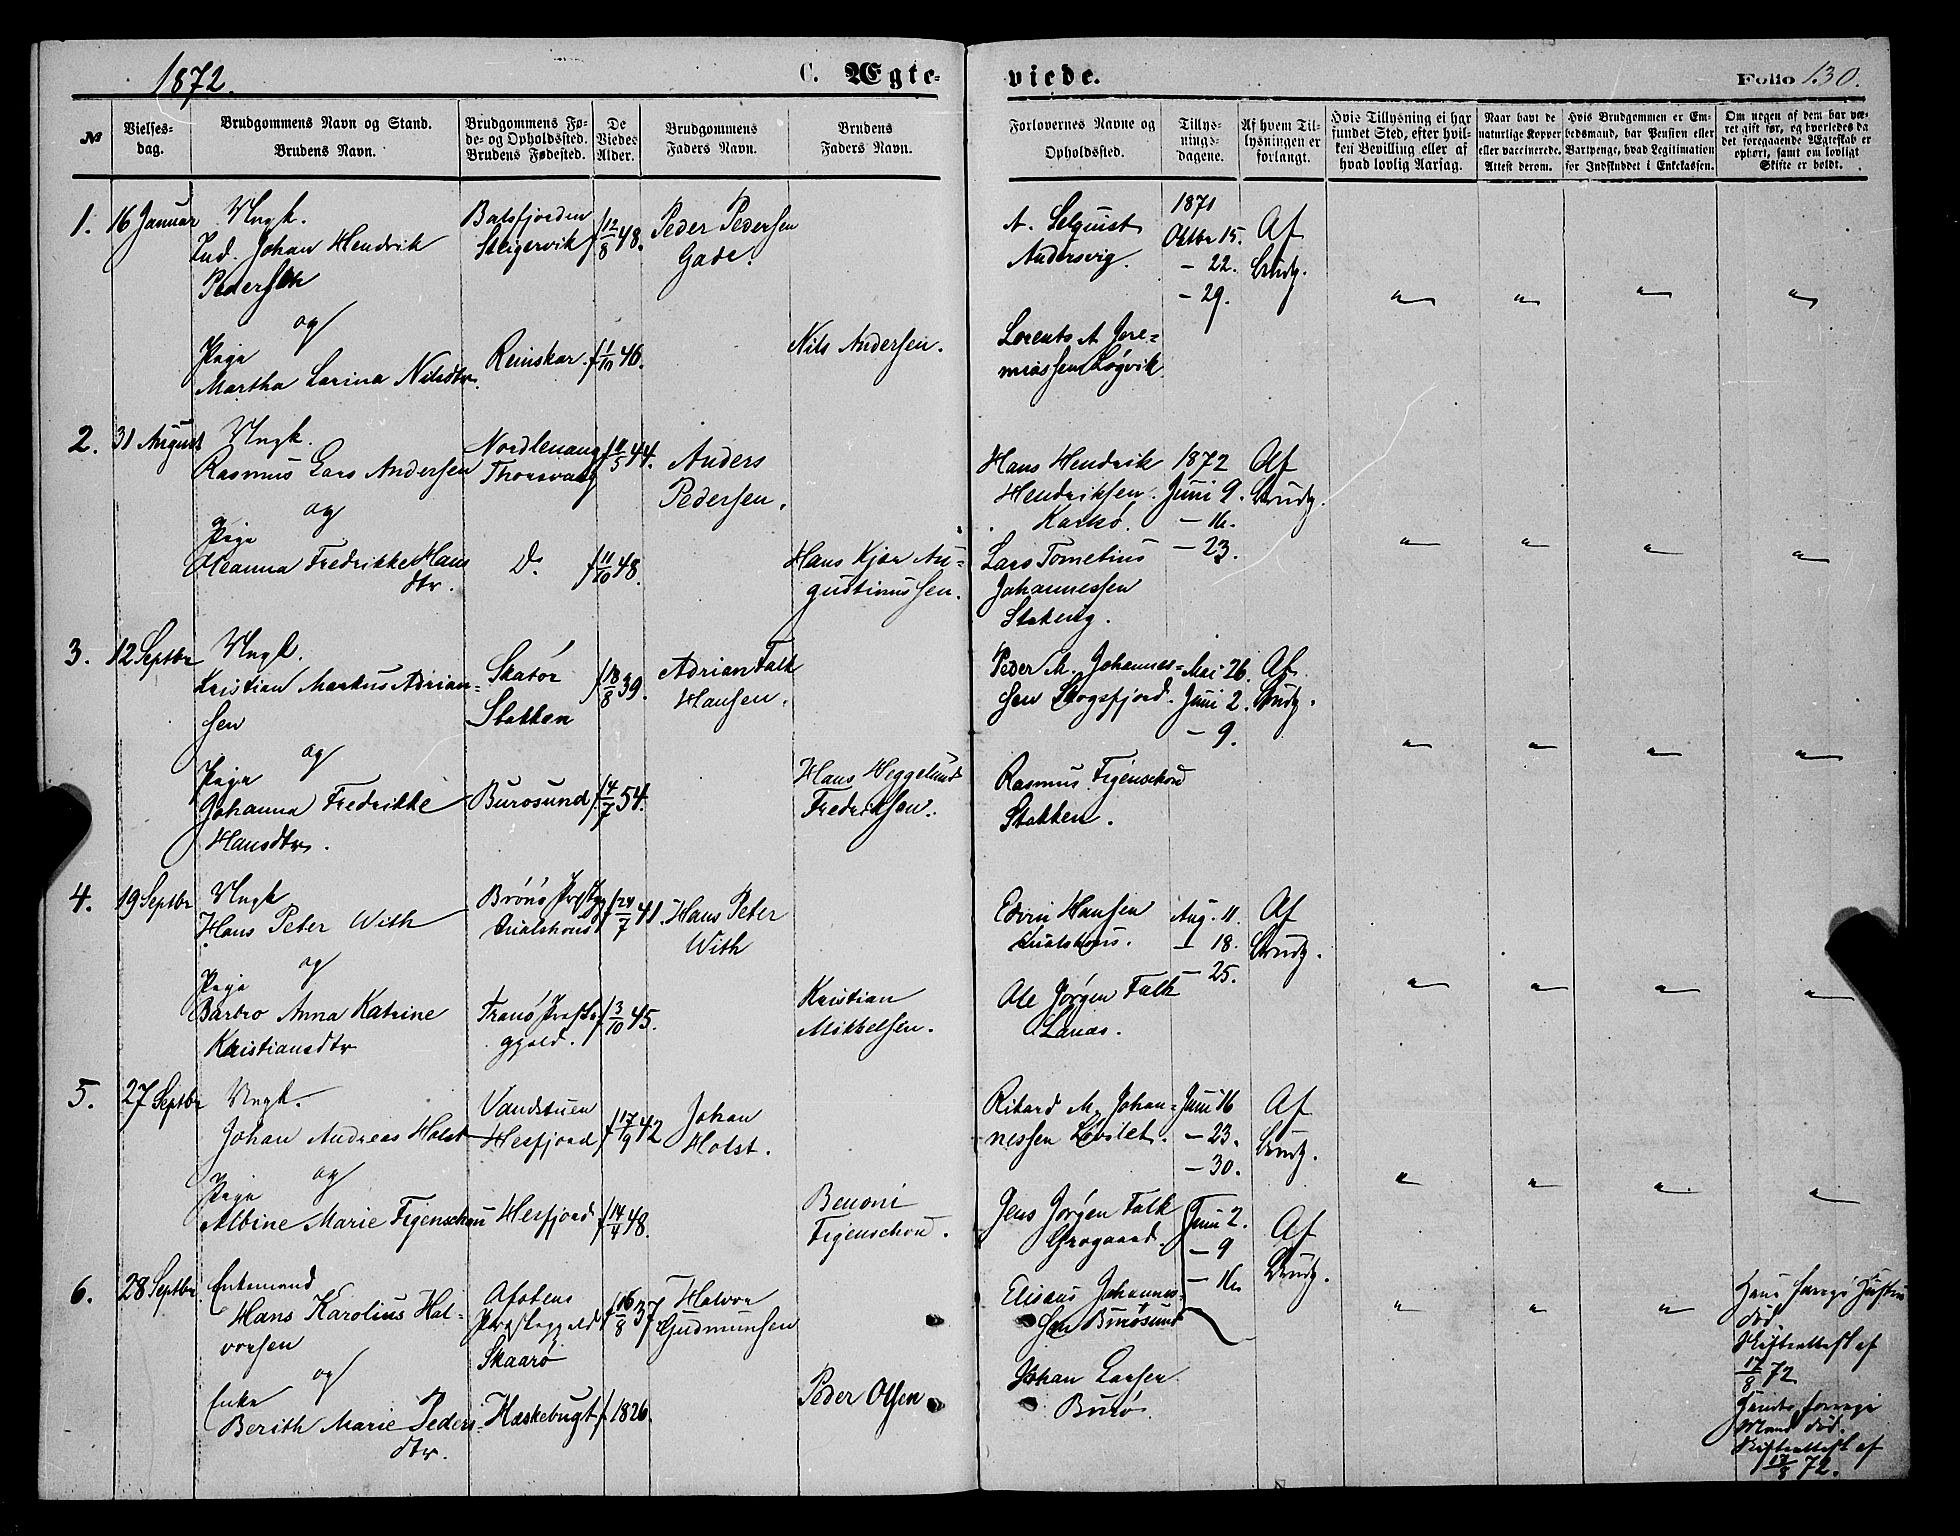 1872.
C. Ægte-
viede.
Folio 130.
№
Vielses-
dag.
Brudgommens Navn og Stand.
Brudens Navn.
Brudgommens Fø-
de- og Opholdssted.
Brudens Fødested.
De
Viedes
Alder.
Brudgommens
Faders Navn.
Brudens
Faders Navn.
Forlovernes Navne og
Opholdssted.
Tillys-
nings-
dagene.
Af hvem Til-
lysningen er
forlangt.
Hvis Tillysning ei har
fundet Sted, efter hvil-
ken Bevilling eller af
hvad lovlig Aarsag.
Naar havt de
naturlige Kopper
eller vaccinerede.
Attest derom.
Hvis Brudgommen er Em-
bedsmand, har Pension eller
Vartpenge, hvad Legitimation
for Indskuddet i Enkekassen.
Om nogen af dem har væ-
ret gift før, og hvorledes da
det foregaaende Ægteskab er
ophørt, samt om lovligt
Skifte er holdt.
1. 16 Januar
Ungk.
Ind. Johan Hendrik
Pedersen
og
Pige
Martha Larina Nilsdtr.
Balsfjorden
Steigervik
Reinskar.
f 12/8 48.
f 1/11 46.
Peder Pedersen
Gade.
Nils Andersen.
A. Selquist
Andersvig.
Lorents A Jere-
miassen Løgvik
1871
Oktbr 15.
- 22.
- 29.
Af
Brudg.
2. 31 August
Ungk.
Rasmus Lars Andersen
og
Pige
Oleanna Fredrikke Hans
dtr.
Nordlenang
Thorsvaag
Do
f 11/5 44.
f 11/10 48.
Anders
Pedersen.
Hans Kjær Au-
gustinussen.
Hans Hendrik
Hendriksen.
Karlsø.
Lars Tometius
Johannessen
Stakeng.
1872
Juni 9.
- 16.
- 23.
Af
Brudg.
3. 12 Septbr
Ungk.
Kristian Markus Adrian-
sen
og
Pige
Johanna Fredrikke
Hansdtr.
Skatør
Stakken
Burøsund.
f 18/8 39.
f 14/7 54.
Adrian Falk
Hansen.
Hans Heggelund
Fredriksen.
Peder M. Johannes-
sen Skogsfjord.
Rasmus Figenschou
Stakken.
Mai 26.
Juni 2.
- 9.
Af
Brudg.
4. 19 Septbr
Ungk
Hans Peter With
og
Pige
Barbro Anna Katrine
Kristiansdtr
Brønø Præstg
Tranø Præste
gjæld.
f 24/7 41.
f 3/10 45.
Hans Peter
With
Kristian
Mikkelsen.
Edvin Hansen
Ole Jørgen Falk
Lanas.
Aug. 11.
- 18.
- 25.
Af
Brudg.
5. 27 Septbr
Ungk.
Johan Andreas Holst
og
Pige
Albine Marie Figenschou
Vandstuen
Hesfjord
Hesfjord
f 17/9 42
f 14/4 48.
Johan
Holst.
Benoni
Figenschou.
Rikard M. Johan-
nessen
Jens Jørgen Falk
Grøgaard.
Juni 16
- 23.
- 30.
Af
Brudg.
6. 28 Septbr
Enkemand
Hans Karolius Hal-
vorsen
og
Enke
Berith Marie Peders-
dtr.
Afotens
Præstegjeld
Skaarø
Hæskebugt
f 16/8 37
f 1826.
Halvor
Gudmunsen
Peder Olsen
Elisæus Johannes-
sen Burøsund
Johan Larsen
Burø.
Juni 2.
- 9
- 16.
Af
Brudg.
Hans forrige Hustru
død
Skifteattest af
17/8 72
Hendes forrige
Mand død.
Skifteattest af
17/8 72.